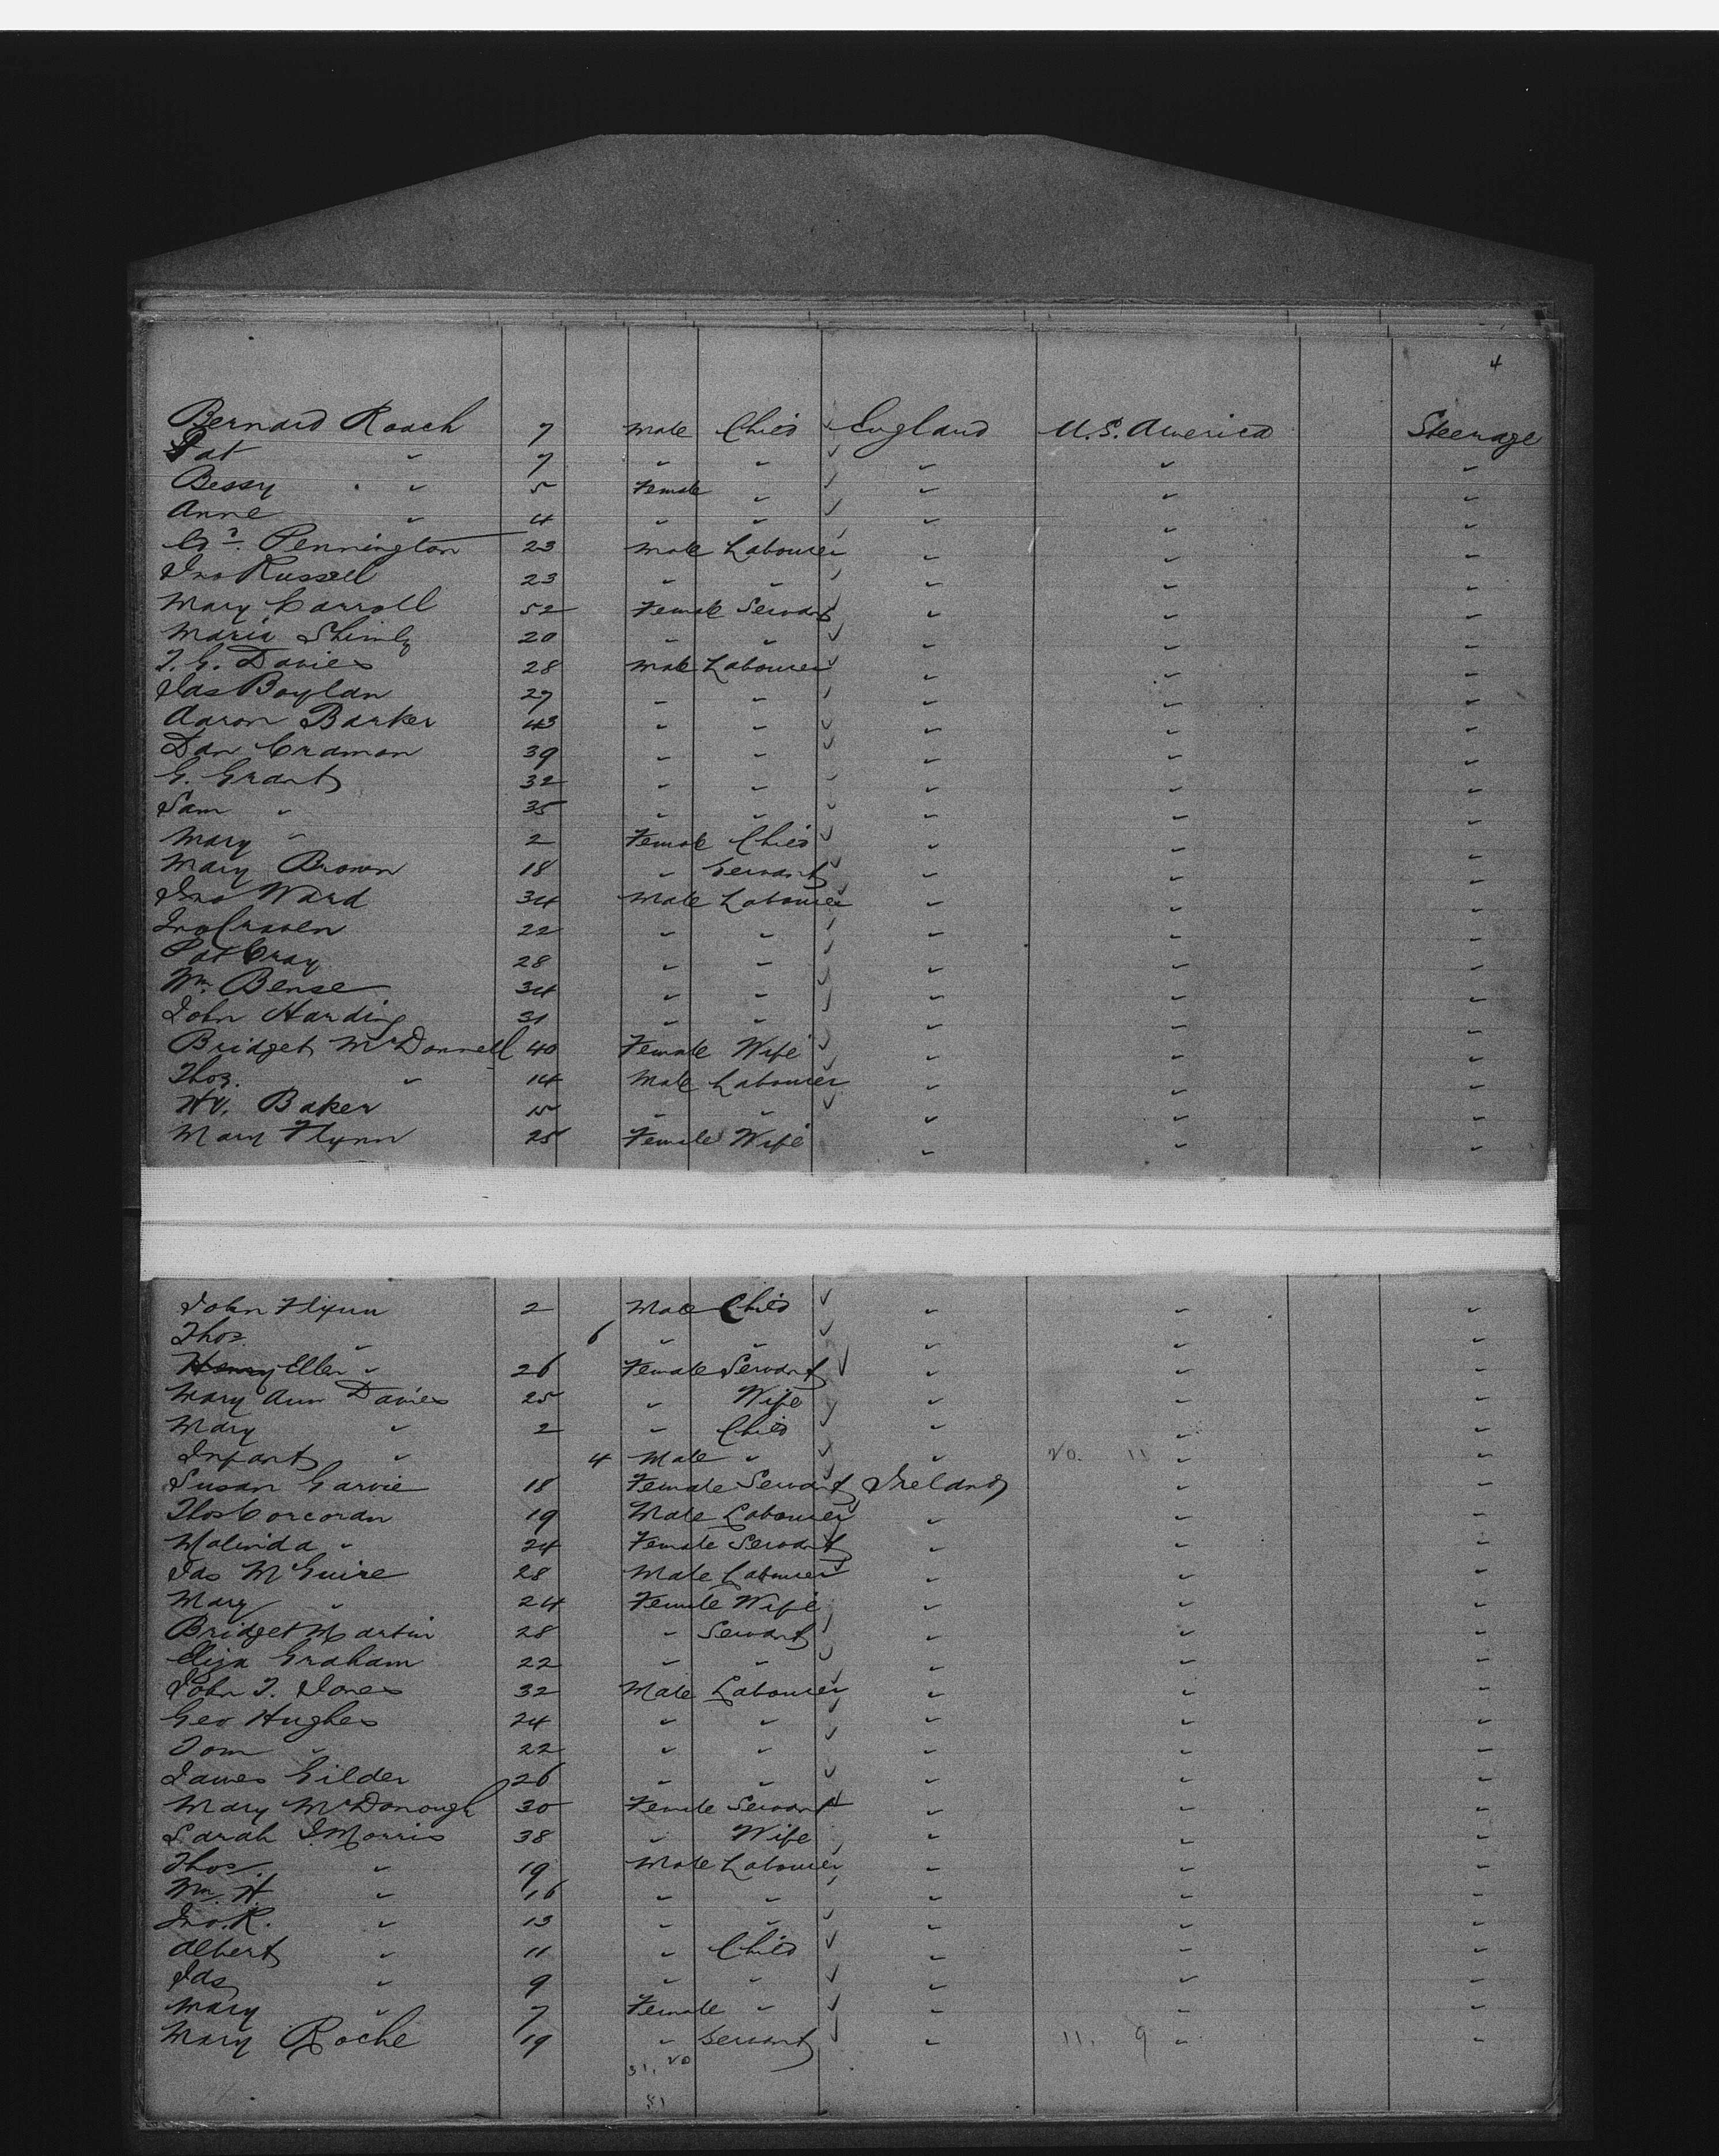 4
Bernard Roach 7 Male Child ✓ England U.S. America Steerage
Pat " 7 " " ✓ " " "
Bessy " 5 Female " ✓ " " "
Anne " 4 " " ✓ " " "
Pennington 23 Male Labourer " " "
Jno Russell 23 " " ✓ " " "
Mary Carroll 52 Female Servant ✓ " " "
Maria 20 " " ✓ " " "
T. G. Davies 28 Male Labourer ✓ " " "
Jas Boylan 27 " " ✓ " " "
Aaron Barker 43 " " ✓ " " "
Dan Cramon 39 " " ✓ " " "
G. Grant 32 " " ✓ " " "
Sam " 35 " " ✓ " " "
Mary " 2 Female Child ✓ " " "
Mary Brown 18 " Servant ✓ " " "
Jno Ward 34 Male Labourer ✓ " " "
Jno Craven 22 " " ✓ " " "
Pat Cray 28 " " ✓ " " "
Wm. Bense 34 " " ✓ " " "
John Harding 31 " " ✓ " " "
Bridget McDonnell 40 Female Wife ✓ " " "
Thos. " 14 Male Labourer " " "
Baker 15 " " ✓ " " "
Mary Flynn 25 Female Wife " " "
John Flynn 2 Male Child ✓ " " "
Thos. " 6 " " ✓ " " "
Henry Ellen " 26 Female Servant ✓ " " "
Mary Ann Davies 25 " Wife ✓ " " "
Mary " 2 " Child ✓ " " "
Infant " 4 Male " ✓ " 20. 11 " "
Susan Garvie 18 Female Servant Ireland " "
Thos Corcoran 19 Male Labourer " " "
Malinda " 24 Female Servant " " "
Jas McGuire 28 Male Labourer ✓ " " "
Mary " 24 Female Wife " " "
Bridget Martin 28 " Servant ✓ " " "
Eliza Graham 22 " " ✓ " " "
John T. Jones 32 Male Labourer ✓ " " "
Geo Hughes 24 " " ✓ " " "
Tom " 22 " " ✓ " " "
James Gilder 26 " " ✓ " " "
Mary McDonough 30 Female Servant " " "
Sarah J. Morris 38 " Wife " " "
Thos. " 19 Male Labourer " " "
Wm. H. " 16 " " ✓ " " "
Jno. R. " 13 " " ✓ " " "
Albert " 11 " Child ✓ " " "
Jas " 9 " " ✓ " " "
Mary " 7 Female " ✓ " " "
Mary Roche 19 " Servant ✓ " 11. 9 " "
31. 20
51